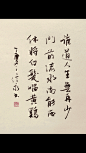 谁道人生无再少
门前流水尚能西
休将白发唱黄鸡